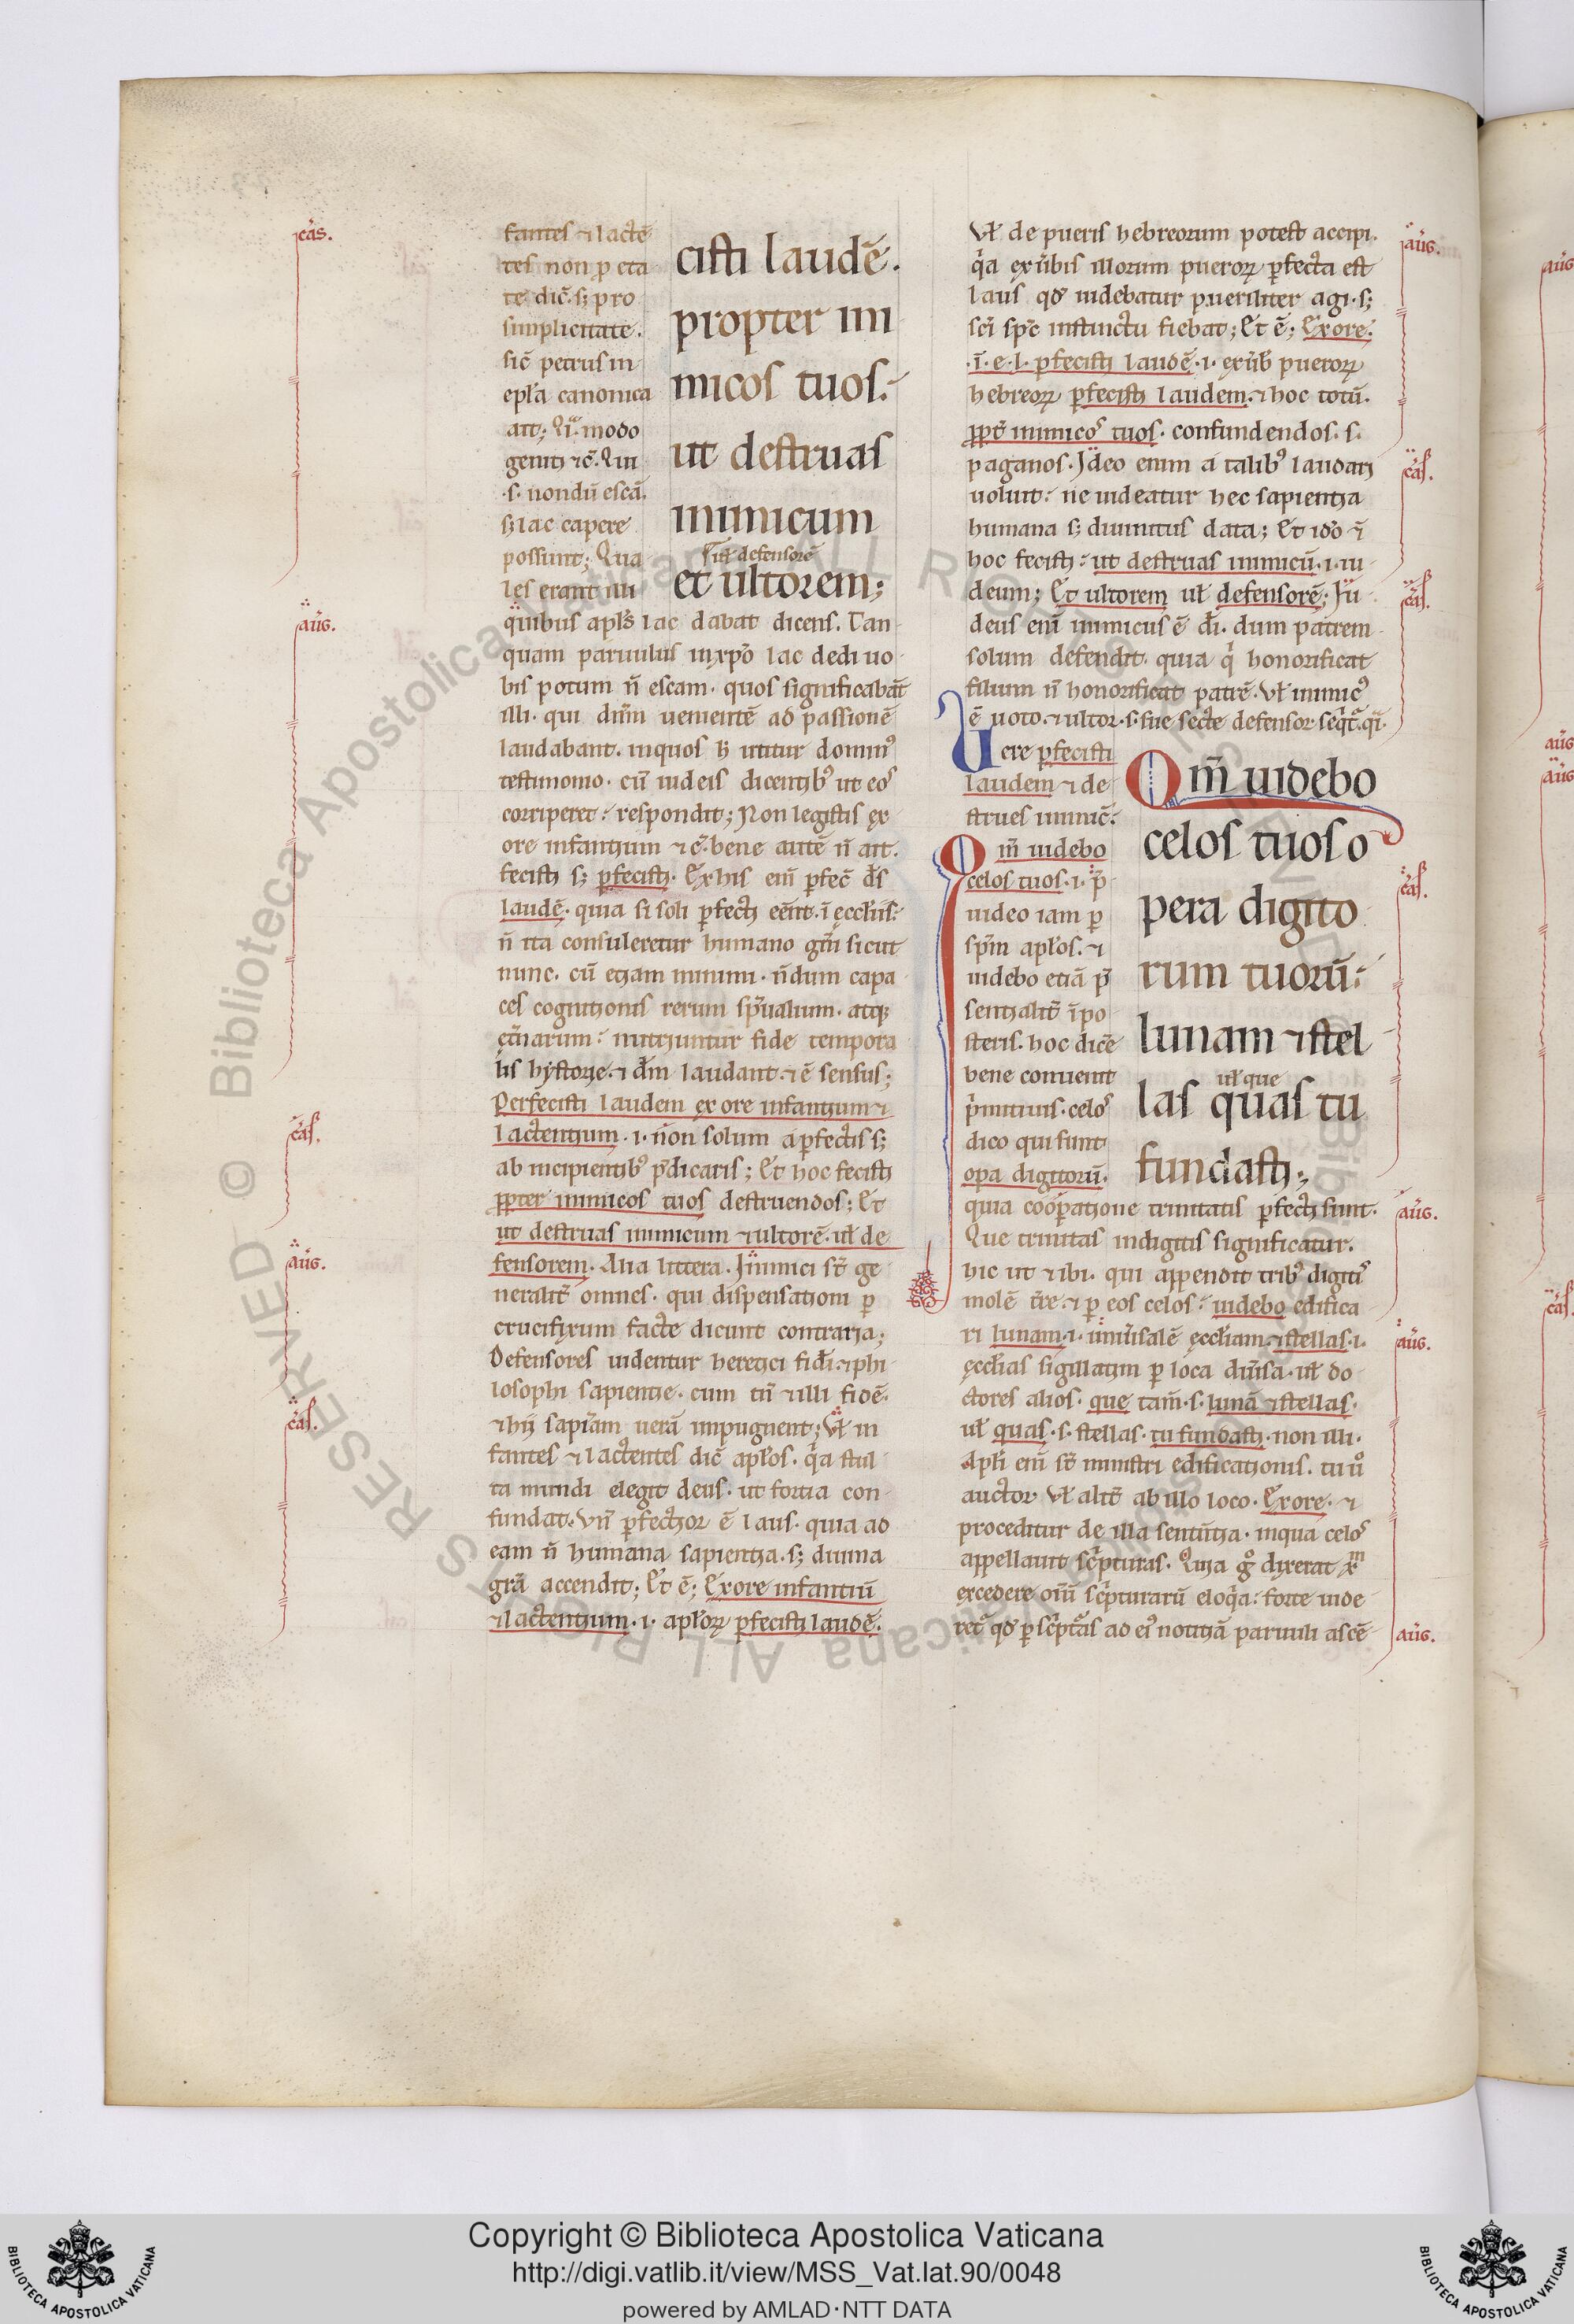 fantes ⁊ lactē
tes non ꝓ eta
te dic̄. sꝫ pro
simplicitate.
sic̄ petrus in
epl'a canonica
ait; Qͣi modo
geniti ⁊c̄. Qui
.s. nondū escā.
sꝫ lac capere
possunt; Qua
les erant illi
cisti laudē.
propter ini
micos tuos.
ut destruas
inimicum
ul' defensorē
et ultorem;
quibus apl's lac dabat dicens. Tan
quam paruulis in xp̄o lac dedi uo
bis potum n̄ escam. quos significabāt
illi. qui dn̄m uenientē ad passionē
laudabant. in quos h̄ utitur dominꝰ
testimonio. cū iudeis dicentibꝰ ut eos
corriperet. respondit; Non legistis ex
ore infantium ⁊c̄. bene autē n̄ ait.
fecisti sꝫ ꝑfecisti. Ex his eni ꝑfec̄ d's
laudē. quia si soli ꝑfecti eēnt. ī eccl'iis.
n̄ ita consuleretur humano gn̄i sicut
nunc. cū etiam minimi. n̄dum capa
ces cognitionis rerum sp̄ualium. atqꝫ
et̄narum. nutriuntur fide tempora
lis hystorie. ⁊ dm̄ laudant. ⁊ ē sensus;
Perfecisti laudem ex ore infantium ⁊
lactentium. .i. non solum a ꝑfectis sꝫ
ab incipientibꝰ p̄dicaris; Et hoc fecisti
ꝓpter inimicos tuos destruendos; Et
ut destruas inimicum ⁊ ultorē. ul' de
fensorem. Alia littera. Inimici st̄ ge
neralit̄ omnes. qui dispensationi ꝑ
crucifixum facte dicunt contraria;
Defensores uidentur heretici fidei. ⁊ phi
losophi sapientie. cum tn̄ ⁊ illi fidē.
⁊ hij sapiām uerā impugnent; Vl' in
fantes ⁊ lactentes dic̄ apl'os. qͥa stul
ta mundi elegit deus. ut fortia con
fundat. Vn̄ ꝑfectior ē laus. quia ad
eam n̄ humana sapientia. sꝫ diuina
grā accendit; Et ē; Ex ore infantiū
⁊ lactentium. .i. apl'oꝝ ꝑfecisti laudē.
Vl' de pueris hebreorum potest accipi.
qͥa ex ūbis illorum pueroꝝ ꝑfecta est
laus qd' uidebatur pueriliter agi. sꝫ
sc̄i sp̄c instinctu fiebat; Et ē; Ex ore.
.i. e. l. ꝑfecisti laudē .i. ex ūb' pueroꝝ
hebreoꝝ ꝑfecisti laudem. ⁊ hoc totū.
ꝓpt̄ inimicos tuos. confundendos. s.
paganos. Ideo enim a talibꝰ laudari
uoluit. ne uideatur hec sapientia
humana sꝫ diuinitus data; Et ido ī
hoc fecisti. ut destruas inimicū .i. iu
deum; Et ultorem ul' defensorē; Iu
deus eni inimicus ē di. dum patrem
solum defendit. quia qͥ honorificat
filium n̄ honorificat patrē. Vl' inimicꝰ
ē uoto. ⁊ ultor .s. sue secte defensor
Vere ꝑfecisti
laudem ⁊ de
strues inimic̄.
Qm̄ uidebo
celos tuos .i. p̄
uideo iam ꝑ
sp̄m apl'os. ⁊
uidebo etiā p̄
sentialit̄ ī po
steris. hoc dice
bene conuenit
pͥmitiuis. celos
dico qui sunt
opa digitorū.
Qm̄ uidebo
celos tuos o
pera digito
rum tuorū.
lunam ⁊ stel
ul' que
las quas tu
fundasti;
quia cooꝑatione trinitatis ꝑfecti sunt.
Que trinitas in digitis significatur.
hic ut ⁊ ibi. qui appendit tribꝰ digitis
molē t̄re. ⁊ ꝑ eos celos. uidebo edifica
ri lunam .i. uniūsalē eccl'iam. ⁊ stellas .i.
eccl'ias sigillatim ꝑ loca diūsa. ul' do
ctores alios. que tam̄ .s. lunā ⁊ stellas.
ul' quas .s. stellas. tu fundasti. non illi.
Apl'i eni st̄ ministri edificationis. tu ūo
auctor. Vl' alit̄ ab illo loco. Ex ore. ⁊
proceditur de illa sententia. in qua celos
appellauit scͥpturas. Quia gͦ dixerat
excedere oīū scͥpturarū eloqͥa. forte uide
ret̄ qd' ꝑ scͥptas ad eiꝰ notitiā paruuli ascē
cas.
aug.
cas.
aug.
cas.
aug.
cas.
cas.
cas.
aug.
aug.
aug.
aug
aug
aug
cas.
© Biblioteca Apostolica Vaticana ALL RIGHTS RESERVED
Copyright © Biblioteca Apostolica Vaticana
http://digi.vatlib.it/view/MSS_Vat.lat.90/0048
powered by AMLAD·NTT DATA
BIBLIOTECA APOSTOLICA VATICANA
BIBLIOTECA APOSTOLICA VATICANA